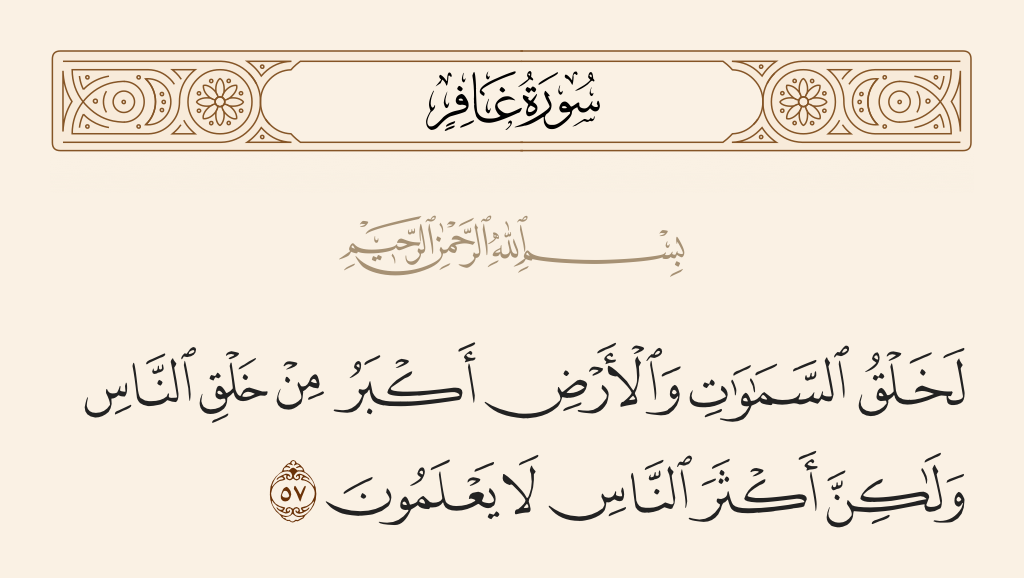 سُورَةُ غَافِرٍ
بِسْمِ ٱللَّهِ ٱلرَّحْمَٰنِ ٱلرَّحِيمِ
لَخَلْقُ ٱلسَّمَٰوَٰتِ وَٱلْأَرْضِ أَكْبَرُ مِنْ خَلْقِ ٱلنَّاسِ
وَلَٰكِنَّ أَكْثَرَ ٱلنَّاسِ لَا يَعْلَمُونَ ٥٧